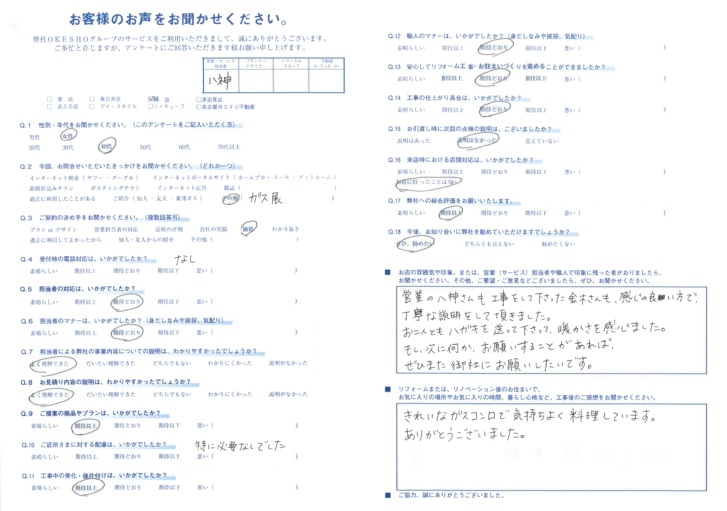 お客様のお声をお聞かせください。
弊社OKESHOグループのサービスをご利用いただきまして、誠にありがとうございます。
ご多忙と存じますが、アンケートにご回答いただきます様お願い申し上げます。
八神
Q.1 性別・年代をお聞かせください。（このアンケートをご記入いただく方）
男性 女性
20代 30代 40代 50代 60代 70代以上
Q.2 今回、お問合せいただいたきっかけをお聞かせください。（どれか一つ）
インターネット検索（ヤフー・グーグル） インターネットポータルサイト（ホームプロ・スーモ・アットホーム）
新聞折込みチラシ ポスティングチラシ インターネット広告 雑誌（ ）
過去に利用したことがある ご紹介（知人・友人・東邦ガス） その他（ ガス展 ）
Q.3 ご契約の決め手をお聞かせください。（複数回答可）
プラン or デザイン 営業担当者の対応 近所の評判 会社の実績 価格 わかり易さ
過去に利用してよかったから 知人・友人からの紹介 その他（ ）
Q.4 受付時の電話対応は、いかがでしたか？ なし
素晴らしい 期待以上 期待どおり 期待以下 悪い（ ）
Q.5 担当者の対応は、いかがでしたか？
素晴らしい 期待以上 期待どおり 期待以下 悪い（ ）
Q.6 担当者のマナーは、いかがでしたか？（身だしなみや挨拶、気配り）
素晴らしい 期待以上 期待どおり 期待以下 悪い（ ）
Q.7 担当者による弊社の事業内容についての説明は、わかりやすかったでしょうか？
よく理解できた だいたい理解できた どちらでもない わかりにくかった 説明がなかった
Q.8 お見積り内容の説明は、わかりやすかったでしょうか？
よく理解できた だいたい理解できた どちらでもない わかりにくかった 説明がなかった
Q.9 ご提案の商品やプランは、いかがでしたか？
素晴らしい 期待以上 期待どおり 期待以下 悪い（ ）
Q.10 ご近所さまに対する配慮は、いかがでしたか？ 特に必要なしでした
素晴らしい 期待以上 期待どおり 期待以下 悪い（ ）
Q.11 工事中の美化・後片付けは、いかがでしたか？
素晴らしい 期待以上 期待どおり 期待以下 悪い（ ）
Q.12 職人のマナーは、いかがでしたか？（身だしなみや挨拶、気配り）
素晴らしい 期待以上 期待どおり 期待以下 悪い（ ）
Q.13 安心してリフォーム工事・お住まいづくりを進めることができましたか？
素晴らしい 期待以上 期待どおり 期待以下 悪い（ ）
Q.14 工事の仕上がり具合は、いかがでしたか？
素晴らしい 期待以上 期待どおり 期待以下 悪い（ ）
Q.15 お引渡し時に次回の点検の説明は、ございましたか？
説明はあった 説明はなかった 覚えていない
Q.16 来店時における店頭対応は、いかがでしたか？
素晴らしい 期待以上 期待どおり 期待以下 悪い（ ）
お店に行ったことはない
Q.17 弊社への総合評価をお願いいたします。
素晴らしい 期待以上 期待どおり 期待以下 悪い（ ）
Q.18 今後、お知り合いに弊社を勧めていただけますでしょうか？
ぜひ、勧めたい どちらとも言えない 勧めたくない
■ お店の雰囲気や印象、または、営業（サービス）担当者や職人で印象に残った者がおりましたら、
お聞かせください。その他、ご要望・ご意見などございましたら、ぜひ、お聞かせください。
営業の八神さんも工事をして下さった金木さんも、感じの良い方で、
丁寧な説明をして頂きました。
お二人ともハガキを送って下さって、暖かさを感じました。
もし、次に何か、お願いすることがあれば、
ぜひまた御社にお願いしたいです。
■ リフォームまたは、リノベーション後のお住まいで、
お気に入りの場所やお気に入りの時間、暮らし心地など、工事後のご感想をお聞かせください。
きれいなガスコンロで気持ちよく料理しています。
ありがとうございました。
■ ご協力、誠にありがとうございました。